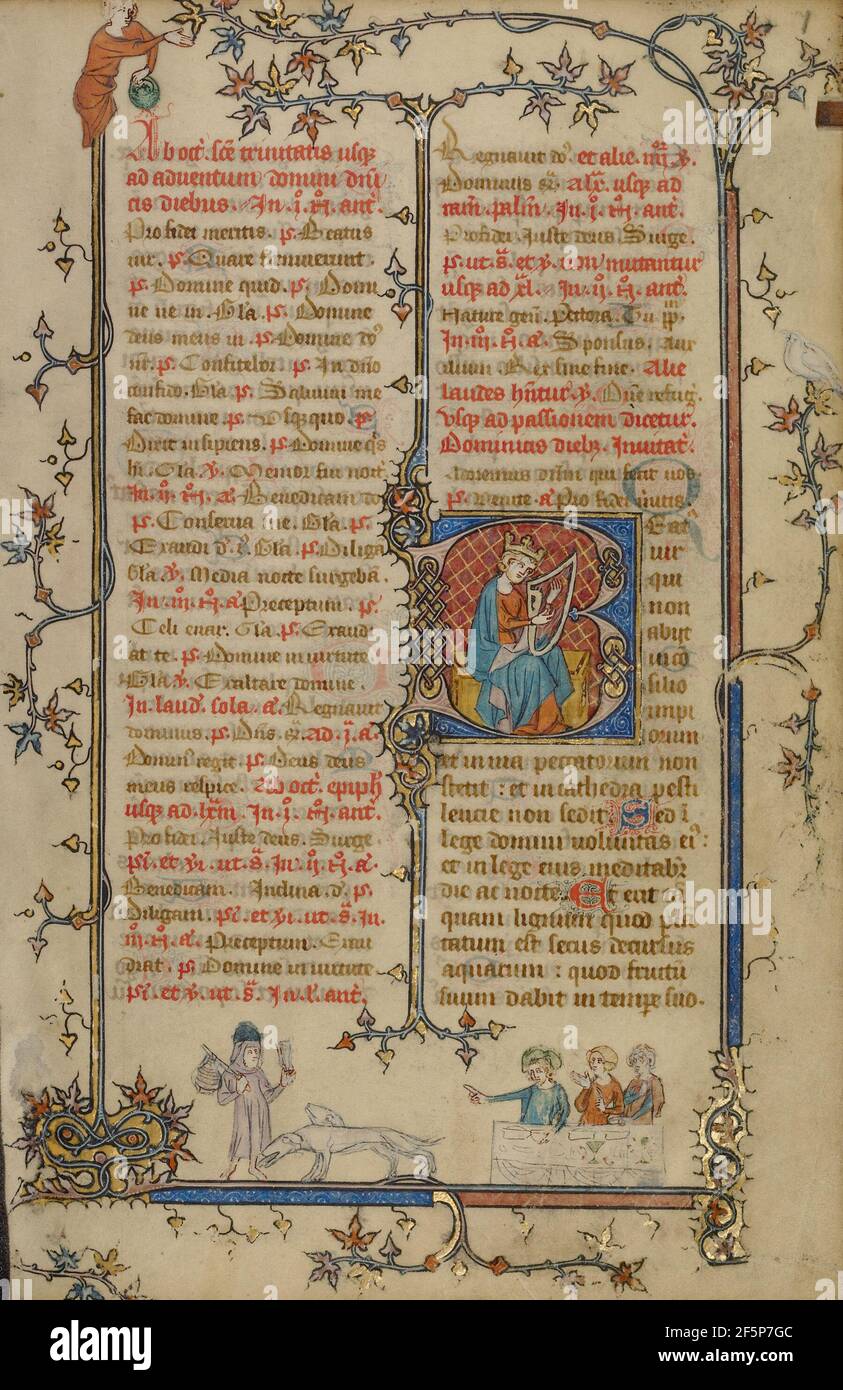 Ab oct̄. sc̄e trinitatis usq̄
ad adventum domini dn̄i
cis diebus. In .j. n̄. ant̄.
Pro fidei meritis. p̄s. Beatus
uir. p̄s. Quare fremuerunt.
p̄s. Domine quid. p̄s. Domi
ne ne in. Gl̄a. p̄s. Domine
deus meus in. p̄s. Domine do᷒
nr̄. p̄s. Confitebor. p̄s. In dn̄o
confido. Gl̄a. p̄s. Saluum me
fac domine. p̄s. Usq̄quo. p̄s.
Dixit insipiens. p̄s. Domine q̄s
hi. Gl̄a. v̄. Memor fui noct̄.
In .ij. n̄. a᷒. Benedicam do
p̄s. Conserva me. Gl̄a. p̄s.
Exaudi d᷒. Gl̄a. p̄s. Diliga
Gl̄a. v̄. Media nocte surgebā.
In .iij. n̄. a᷒. Preceptum. p̄s.
Celi enar. Gl̄a. p̄s. Exaud
at te. p̄s. Domine in uirtute
Gl̄a. v̄. Exaltare domine.
In laud᷒. sola. a᷒. Regnauit
dominus. p̄s. ad .j. a᷒.
Domin᷒ regit. p̄s. Deus deus
meus respice. Ab oct̄. epiph̄
usq̄ ad lxx̄m. In .j. n̄. ant̄.
Pro fidei. Iuste deus. Surge.
p̄s. et v̄. ut s̄. In .ij. n̄. a᷒.
Benedicam. Inclina. d᷒. p̄s.
Diligam. p̄s. et v̄. ut s̄. In.
iij. n̄. a᷒. Preceptum. Exau
diat. p̄s. Domine in uirtute
p̄s. et v̄. ut s̄. In l. ant̄.
Regnauit do᷒. et alie. iiij. v̄.
usq̄ ad
ram. palm̄. In .j. n̄. ant̄.
Pro fidei. Iuste deus. Surge.
p̄s. ut s̄. et v̄. non mutantur
usq̄ ad xl. In .ij. n̄. ant̄.
Nature gen᷒. Pectora. Tu
In .iij. n̄. a᷒. Sponsus. Aux
ilium. Rex sine fine. Alie
laudes hn̄tur. v̄. Dn̄e refug᷒.
Usq̄ ad passionem dicetur.
Dominicis dieb᷒. Inuitat̄.
Adoremus dn̄m qui fecit nos.
p̄s. Venite. a᷒. Pro fidei m̄itis.
Beat᷒
uir
qui
non
abijt
in co̅
silio
impi
orum
et in uia peccatorum non
stetit : et in cathedra pesti
lencie non sedit. Sed ī
lege domini voluntas ei᷒ :
et in lege eius meditabr̄
die ac nocte. Et erit tā
quam lignum quod plā
tatum est secus decursus
aquarum : quod fructū
suum dabit in tempe̅ suo.
alamy
Image ID: 2F5P7GC
www.alamy.com